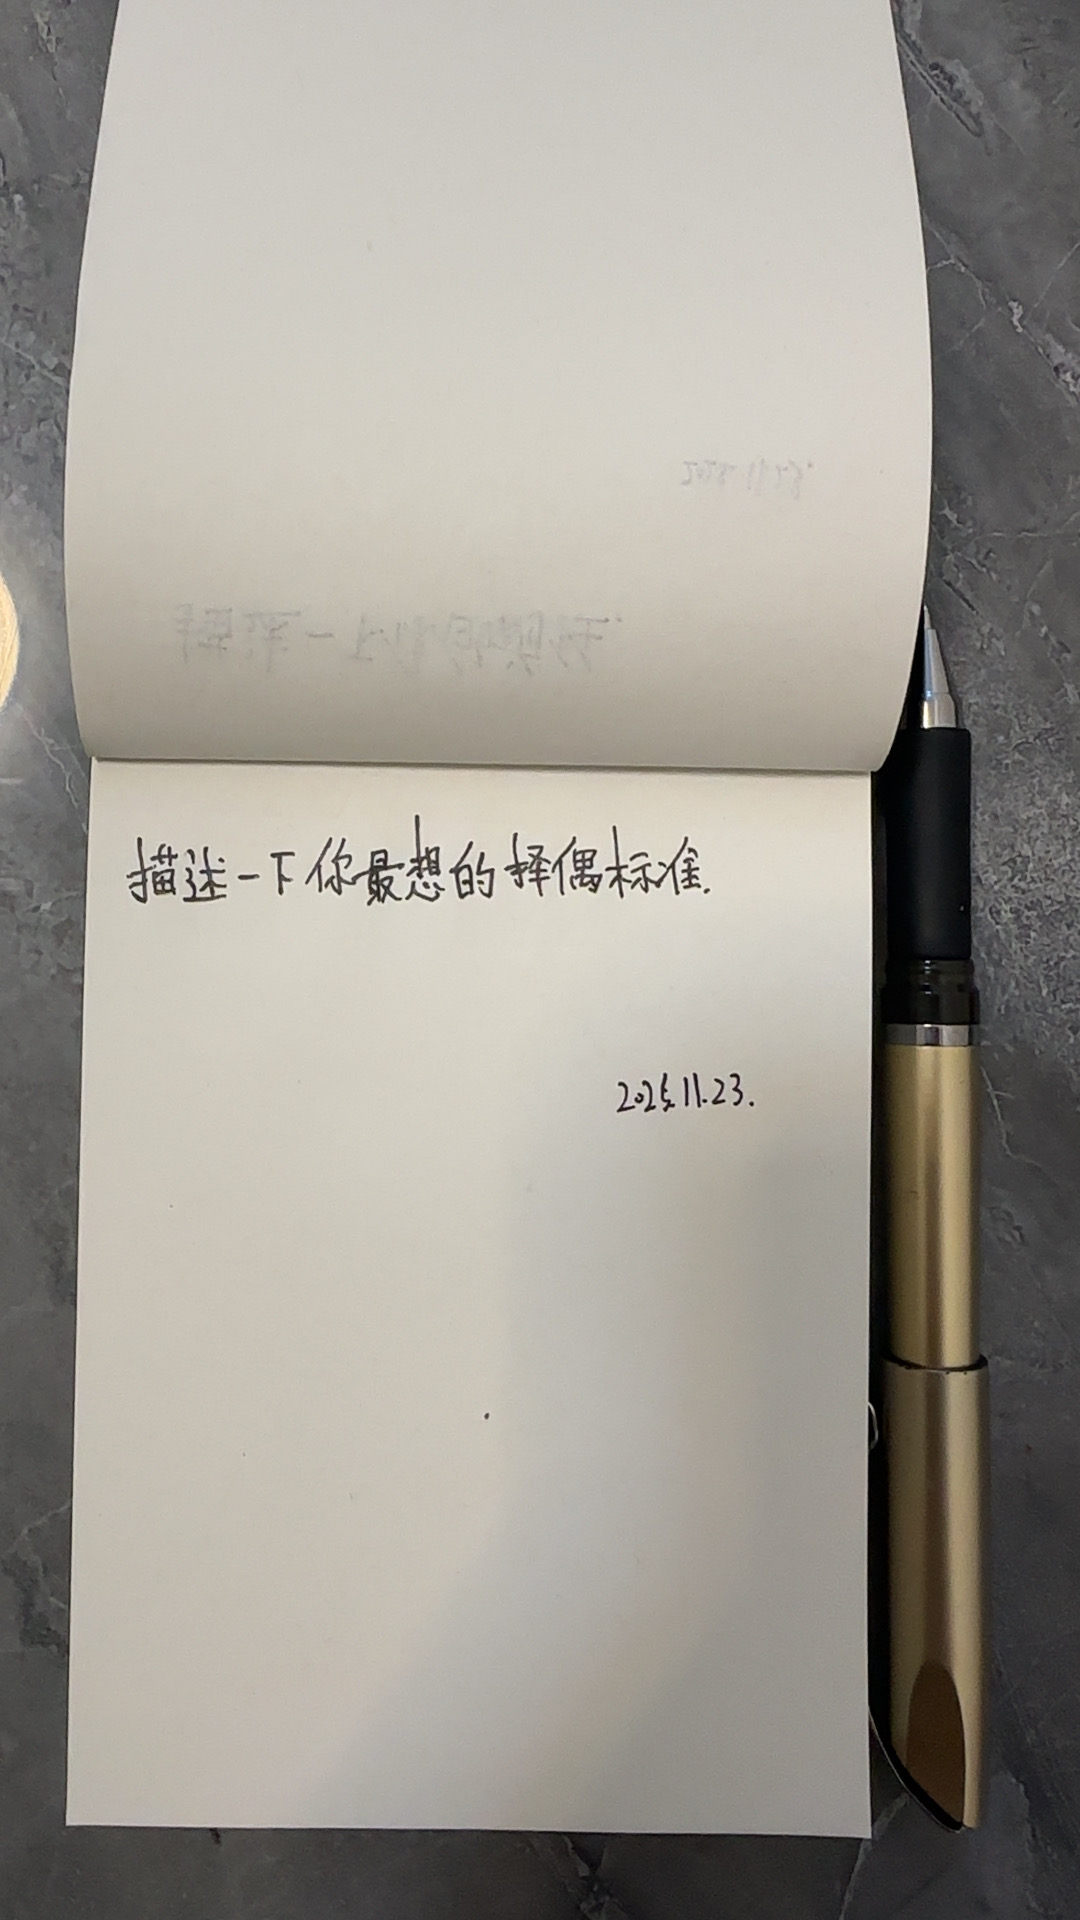 描述一下你最想的择偶标准.
2025.11.23.